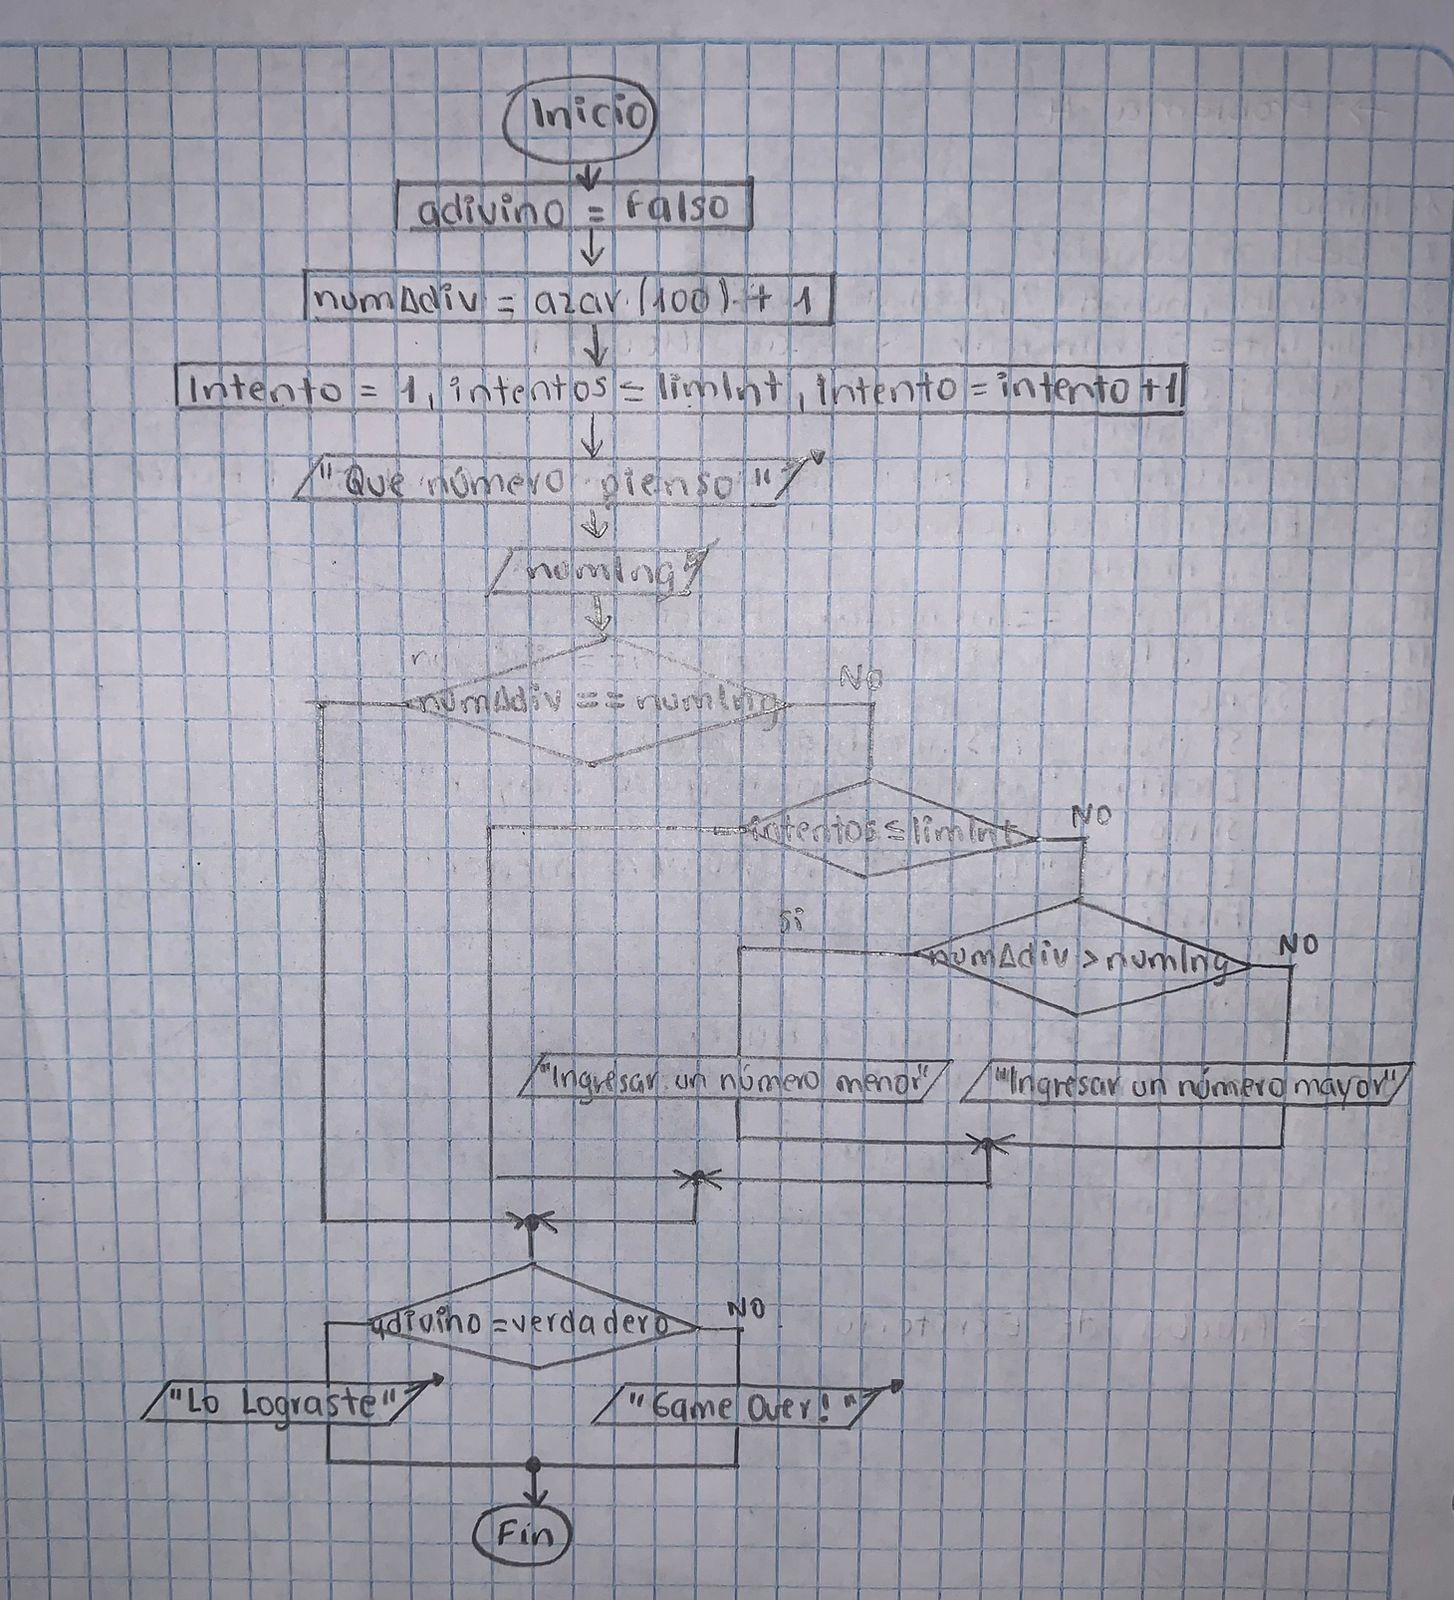 Inicio
adivino = Falso
numAdiv = azar (100) + 1
Intento = 1, intentos ≤ limInt, Intento = intento +1
"Que número pienso"
numIng
numAdiv == numIng
NO
intentos ≤ limInt
NO
numAdiv > numIng
Si
NO
"Ingresar un número menor"
"Ingresar un número mayor"
adivino = verdadero
NO
"Lo Lograste"
"Game Over!"
Fin